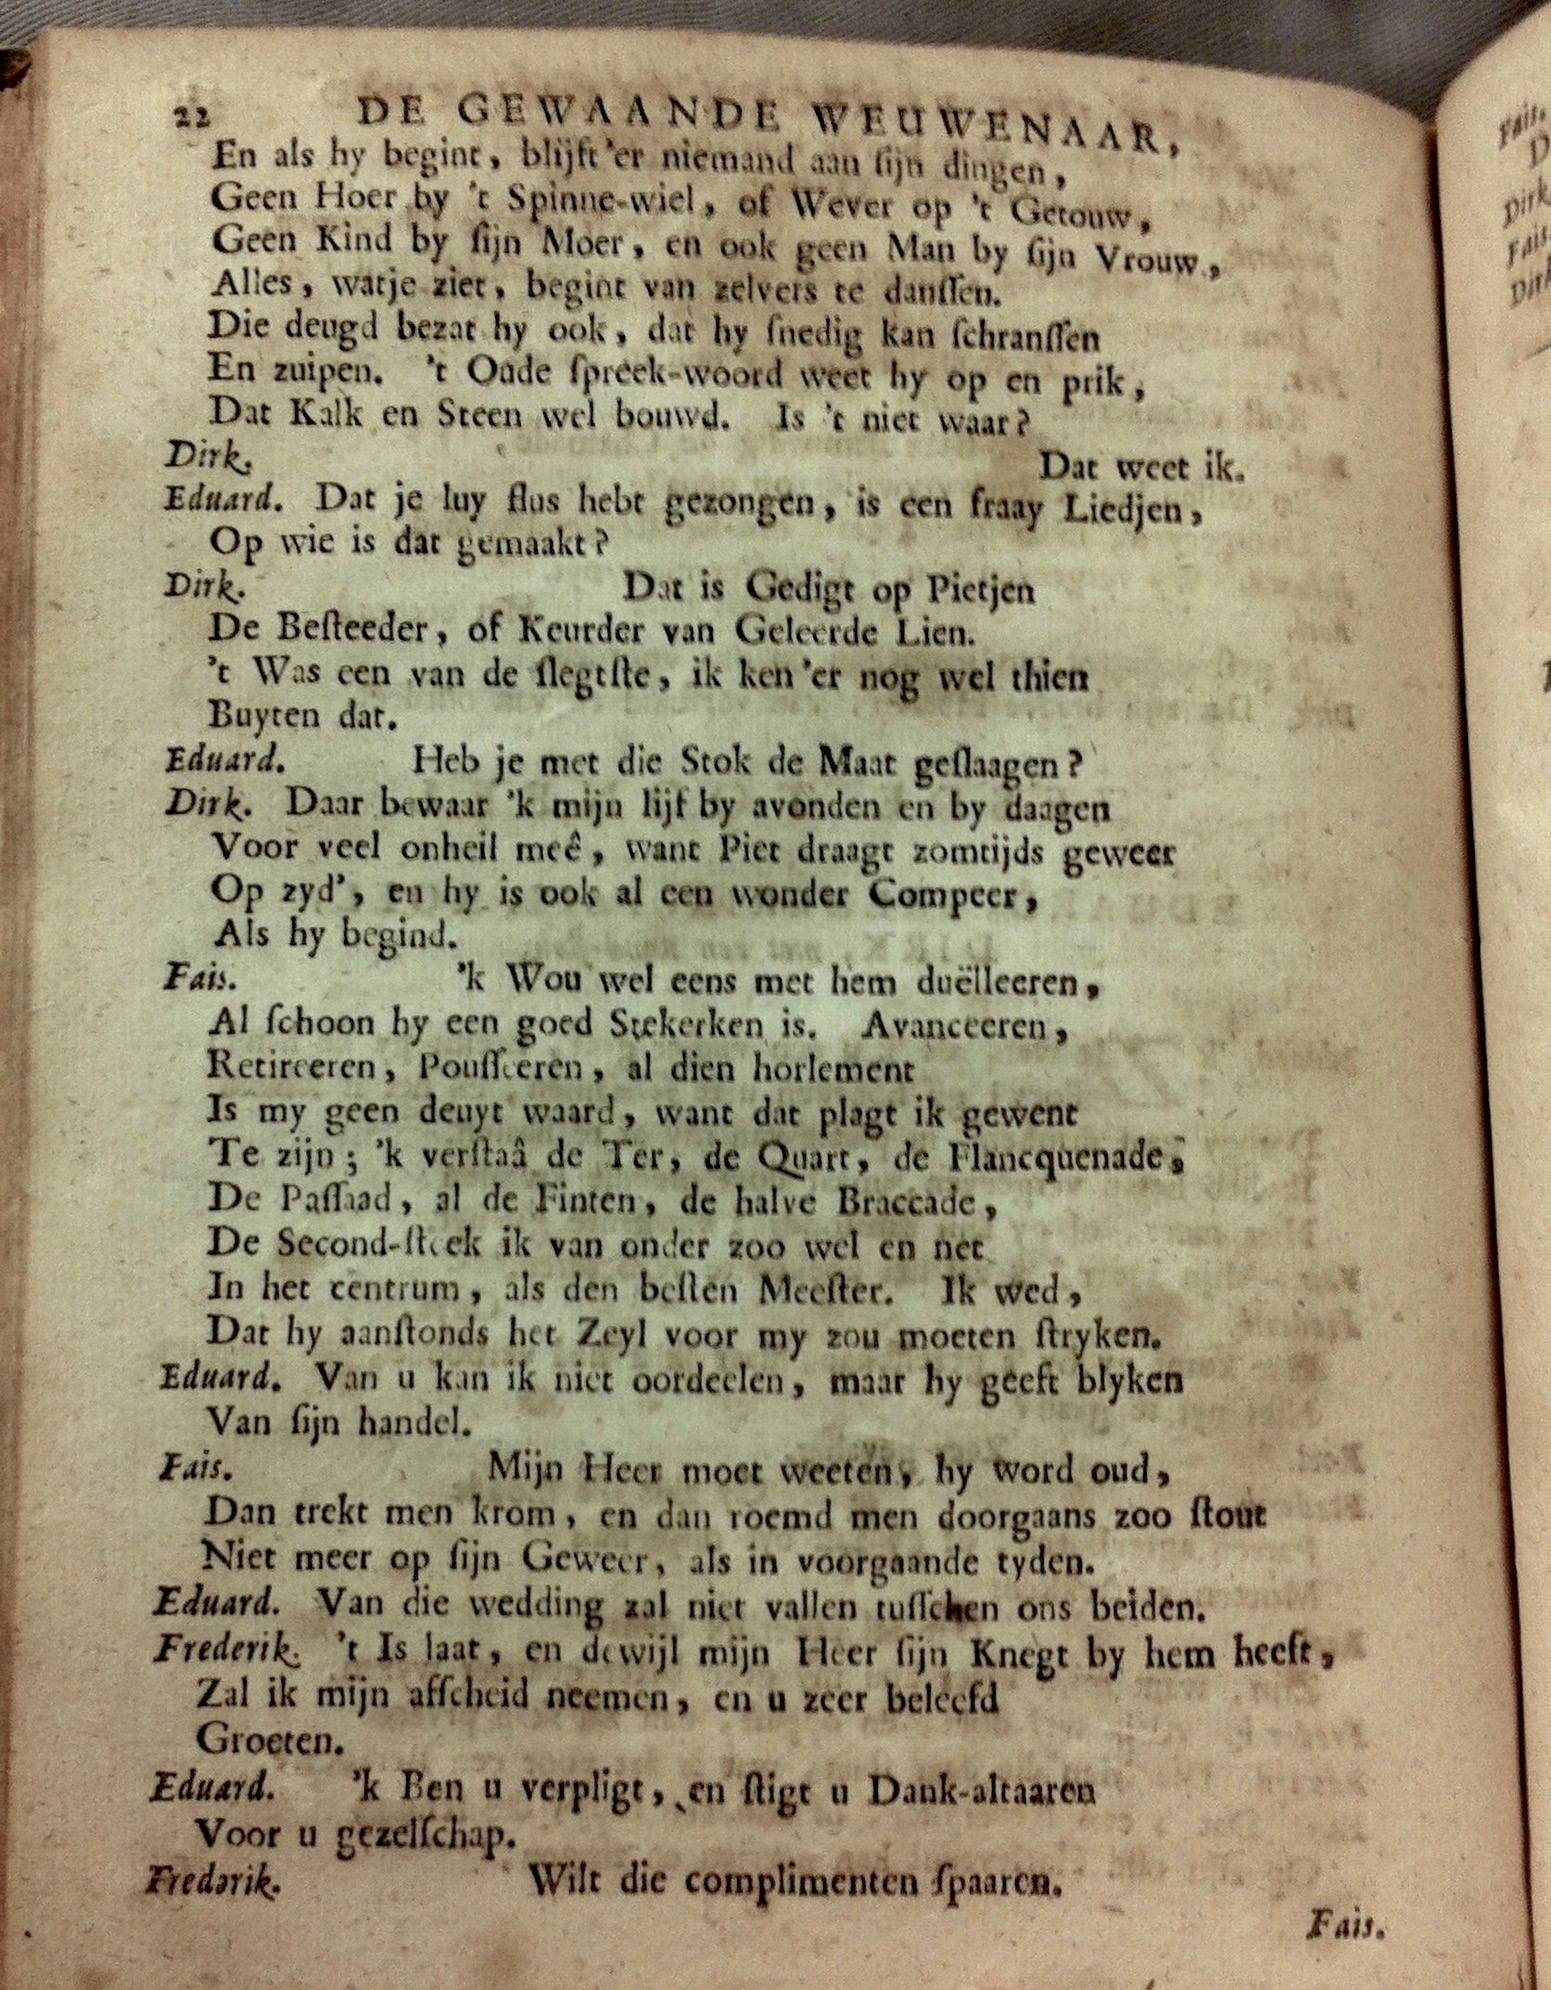 22 DE GEWAANDE WEUWENAAR,
En als hy begint, blijft 'er niemand aan ſijn dingen,
Geen Hoer by 't Spinne-wiel, of Wever op 't Getouw,
Geen Kind by ſijn Moer, en ook geen Man by ſijn Vrouw,
Alles, watje ziet, begint van zelvers te danſſen.
Die deugd bezat hy ook, dat hy ſnedig kan ſchranſſen
En zuipen. 't Oude ſpreek-woord weet hy op en prik,
Dat Kalk en Steen wel bouwd. Is 't niet waar?
Dirk. Dat weet ik.
Eduard. Dat je luy flus hebt gezongen, is een fraay Liedjen,
Op wie is dat gemaakt?
Dirk. Dat is Gedigt op Pietjen
De Beſteeder, of Keurder van Geleerde Lien.
't Was een van de ſlegtſte, ik ken 'er nog wel thien
Buyten dat.
Eduard. Heb je met die Stok de Maat geſlaagen?
Dirk. Daar bewaar 'k mijn lijf by avonden en by daagen
Voor veel onheil meê, want Piet draagt zomtijds geweer
Op zyd', en hy is ook al een wonder Compeer,
Als hy begind.
Fais. 'k Wou wel eens met hem duëlleeren,
Al ſchoon hy een goed Stekerken is. Avanceeren,
Retireeren, Pouſſeeren, al dien horlement
Is my geen deuyt waard, want dat plagt ik gewent
Te zijn; 'k verſtaâ de Ter, de Quart, de Flancquenade,
De Paſſaad, al de Finten, de halve Braccade,
De Second-ſteek ik van onder zoo wel en net
In het centrum, als den beſten Meeſter. Ik wed,
Dat hy aanſtonds het Zeyl voor my zou moeten ſtryken.
Eduard. Van u kan ik niet oordeelen, maar hy geeft blyken
Van ſijn handel.
Fais. Mijn Heer moet weeten, hy word oud,
Dan trekt men krom, en dan roemd men doorgaans zoo ſtout
Niet meer op ſijn Geweer, als in voorgaande tyden.
Eduard. Van die wedding zal niet vallen tuſſchen ons beiden.
Frederik. 't Is laat, en dewijl mijn Heer ſijn Knegt by hem heeft,
Zal ik mijn afſcheid neemen, en u zeer beleefd
Groeten.
Eduard. 'k Ben u verpligt, en ſtigt u Dank-altaaren
Voor u gezelſchap.
Frederik. Wilt die complimenten ſpaaren.
Fais.